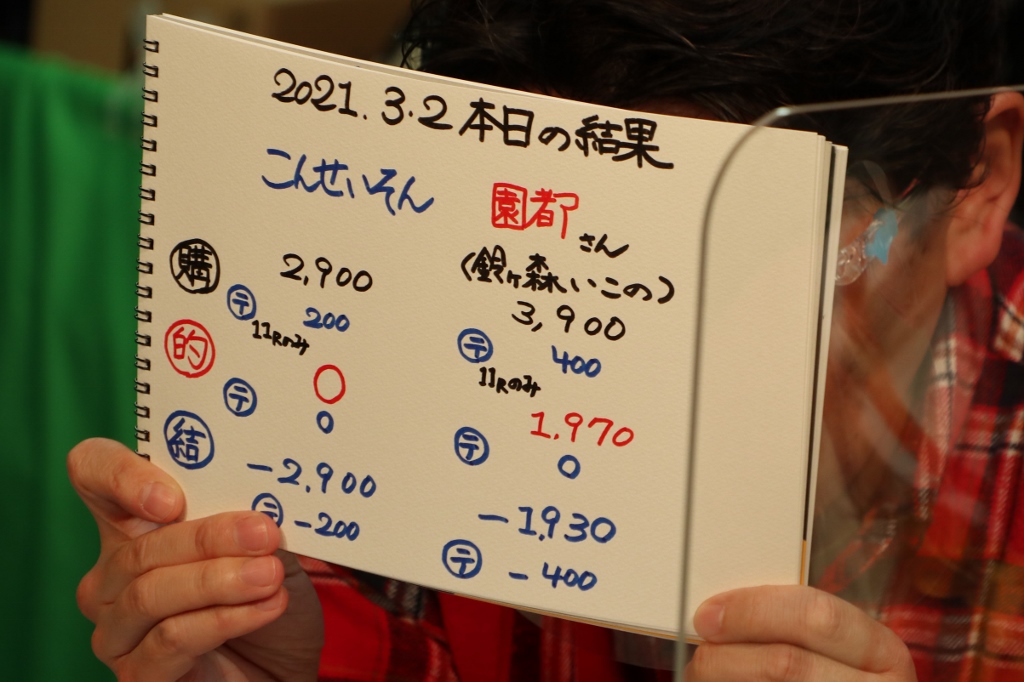 2021.3.2 本日の結果
こんせいそん 園都さん
(鈴ヶ森いこの)
購 2,900 3,900
テ 200 テ 400
11Rのみ 11Rのみ
的 0 1,970
テ 0 テ 0
結 -2,900 -1,930
テ -200 テ -400